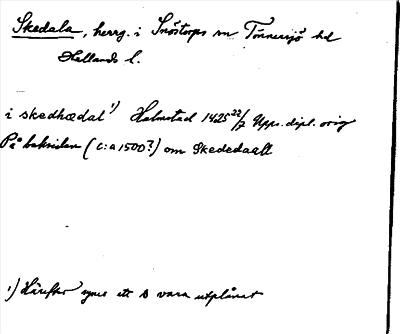 Skedala, herrg. i Snöstorps sn Tönnersjö hd
Hallands l.
i skedhædal ¹) Halmstad 1425 22/7 Upps. dipl. orig
På baksidan (c:a 1500?) om Skededaall
¹) Härefter synes ett s vara utplånat